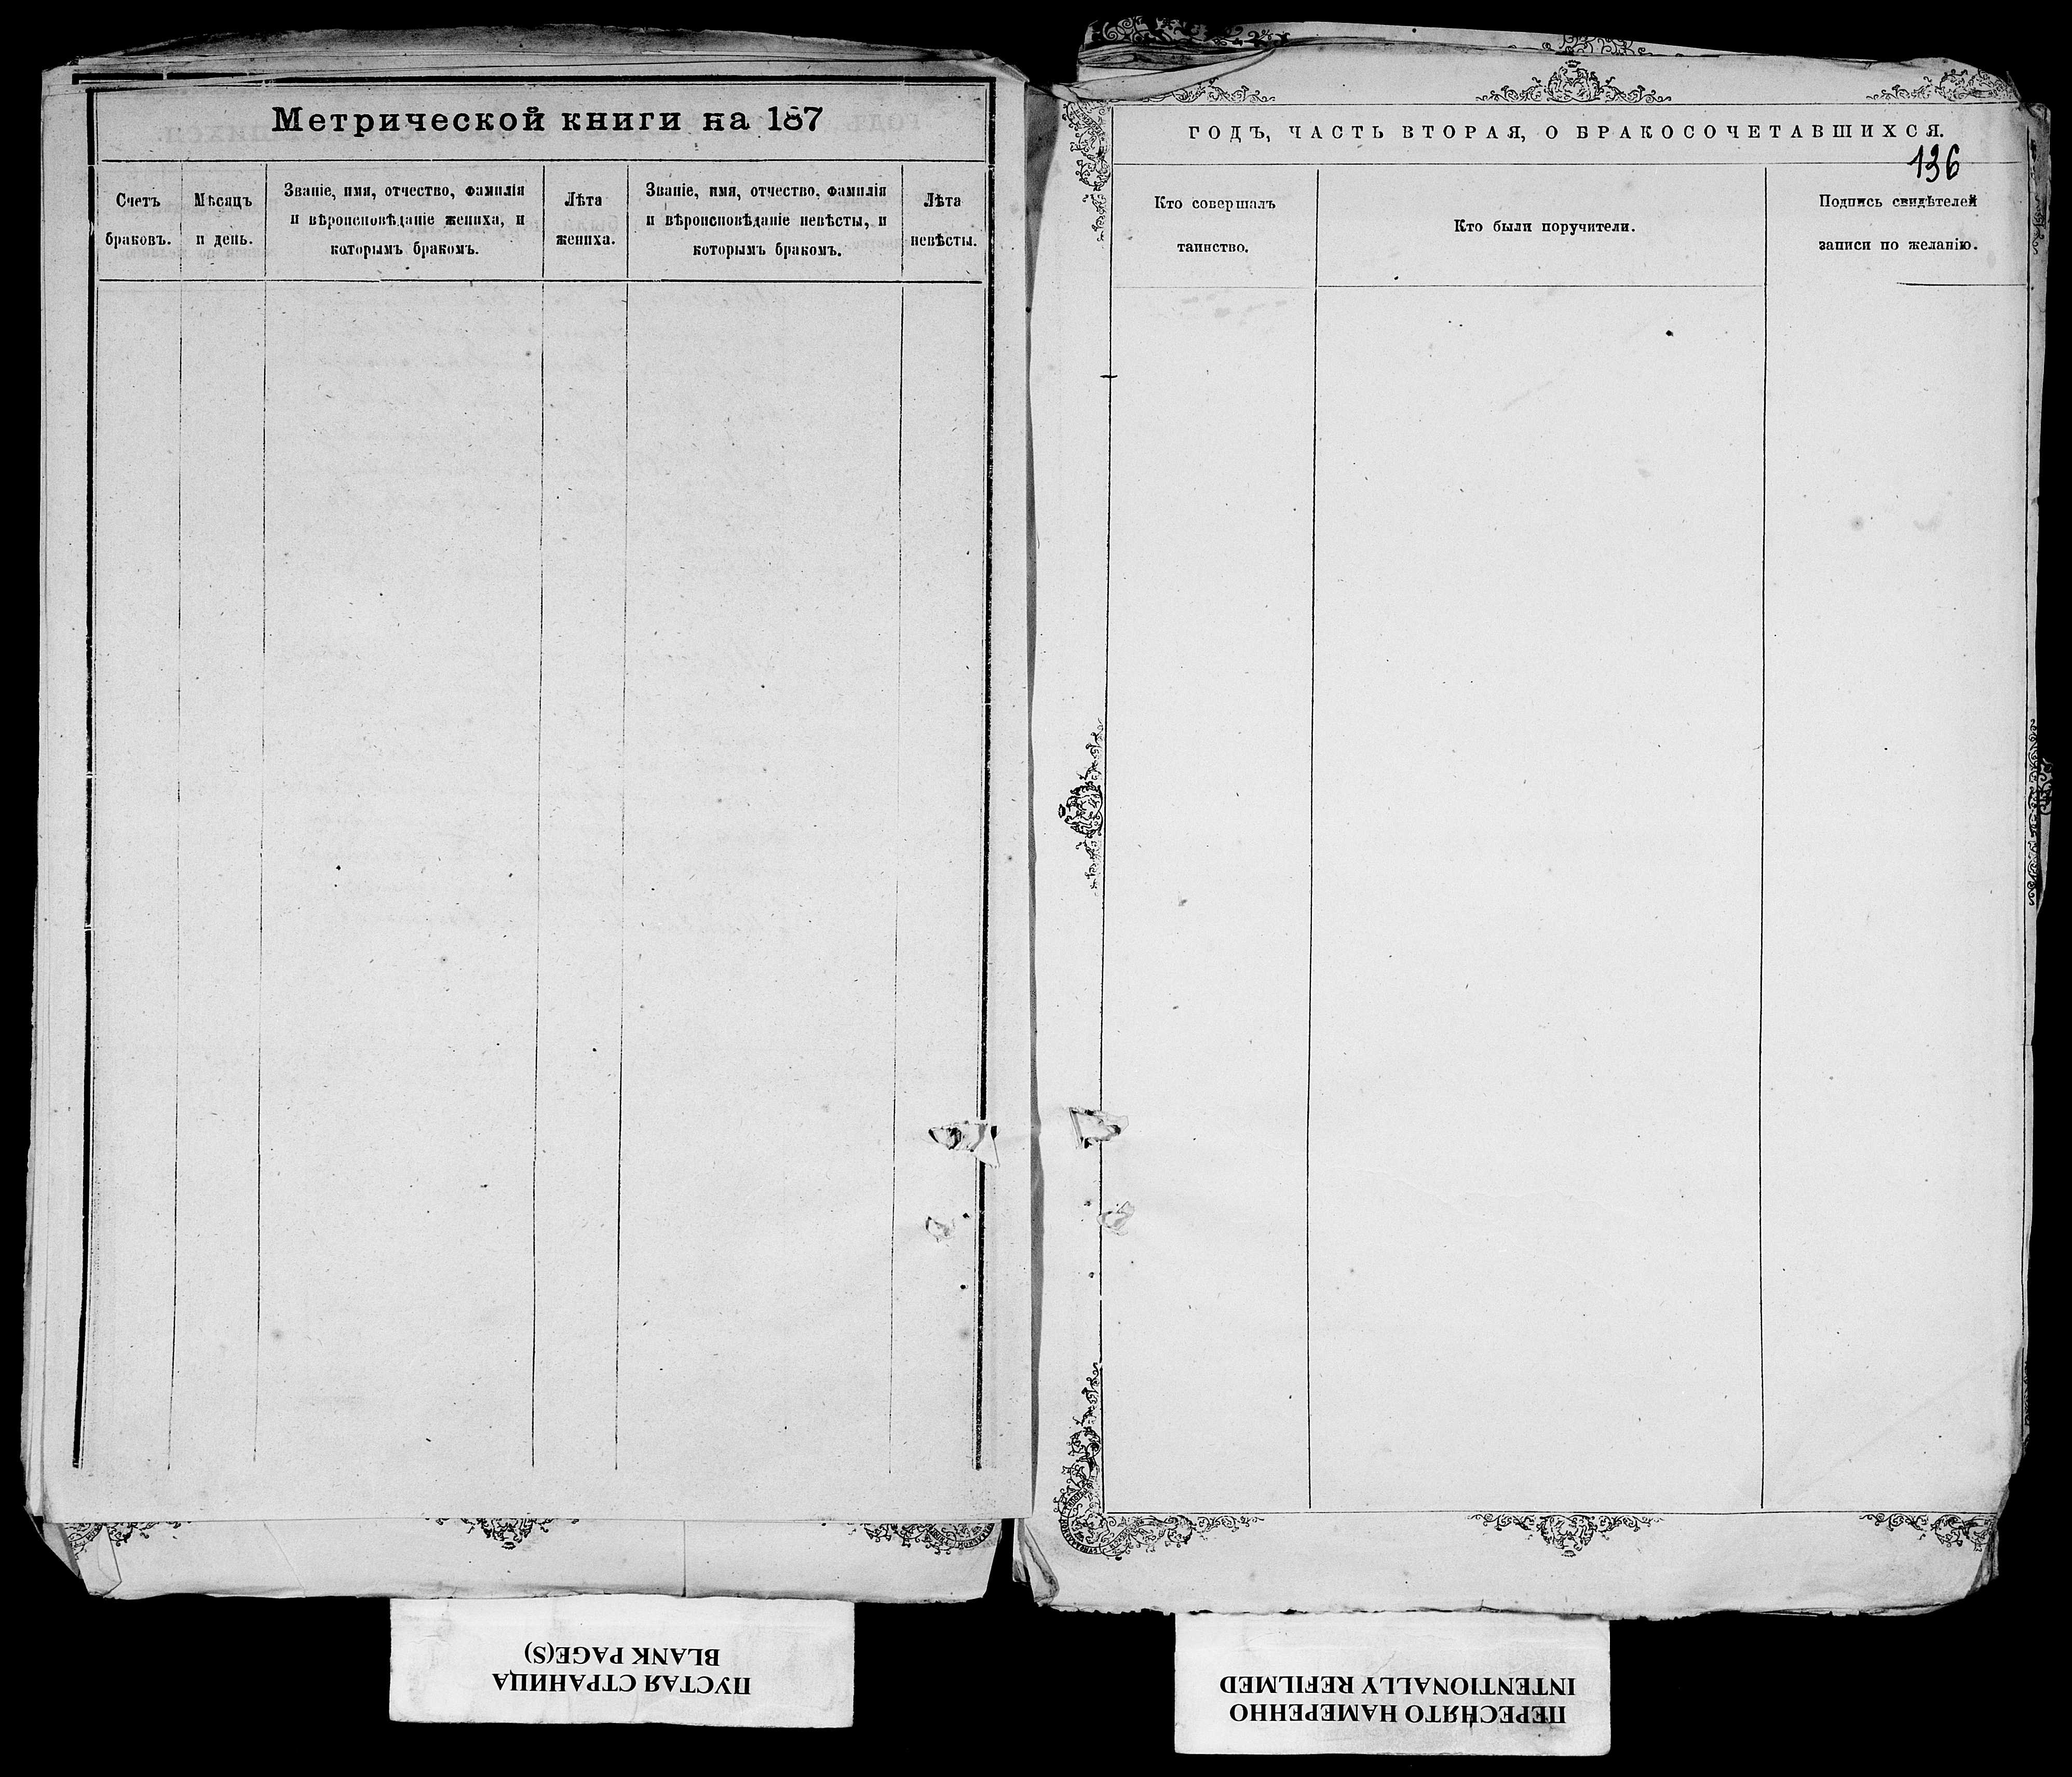 Метрической книги на 187
Счетъ
браковъ.
Мѣсяцъ
и день.
Званіе, имя, отчество, фамилія
и вѣроисповѣданіе жениха, и
которымъ бракомъ.
Лѣта
жениха.
Званіе, имя, отчество, фамилія
и вѣроисповѣданіе невѣсты, и
которымъ бракомъ.
Лѣта
невѣсты.
ГОДЪ, ЧАСТЬ ВТОРАЯ, О БРАКОСОЧЕТАВШИХСЯ.
136
Кто совершалъ
таинство.
Кто были поручители.
Подпись свидѣтелей
записи по желанію.
ПУСТАЯ СТРАНИЦА
BLANK PAGE(S)
ПЕРЕСНЯТО НАМЕРЕННО
INTENTIONALLY REFILMED